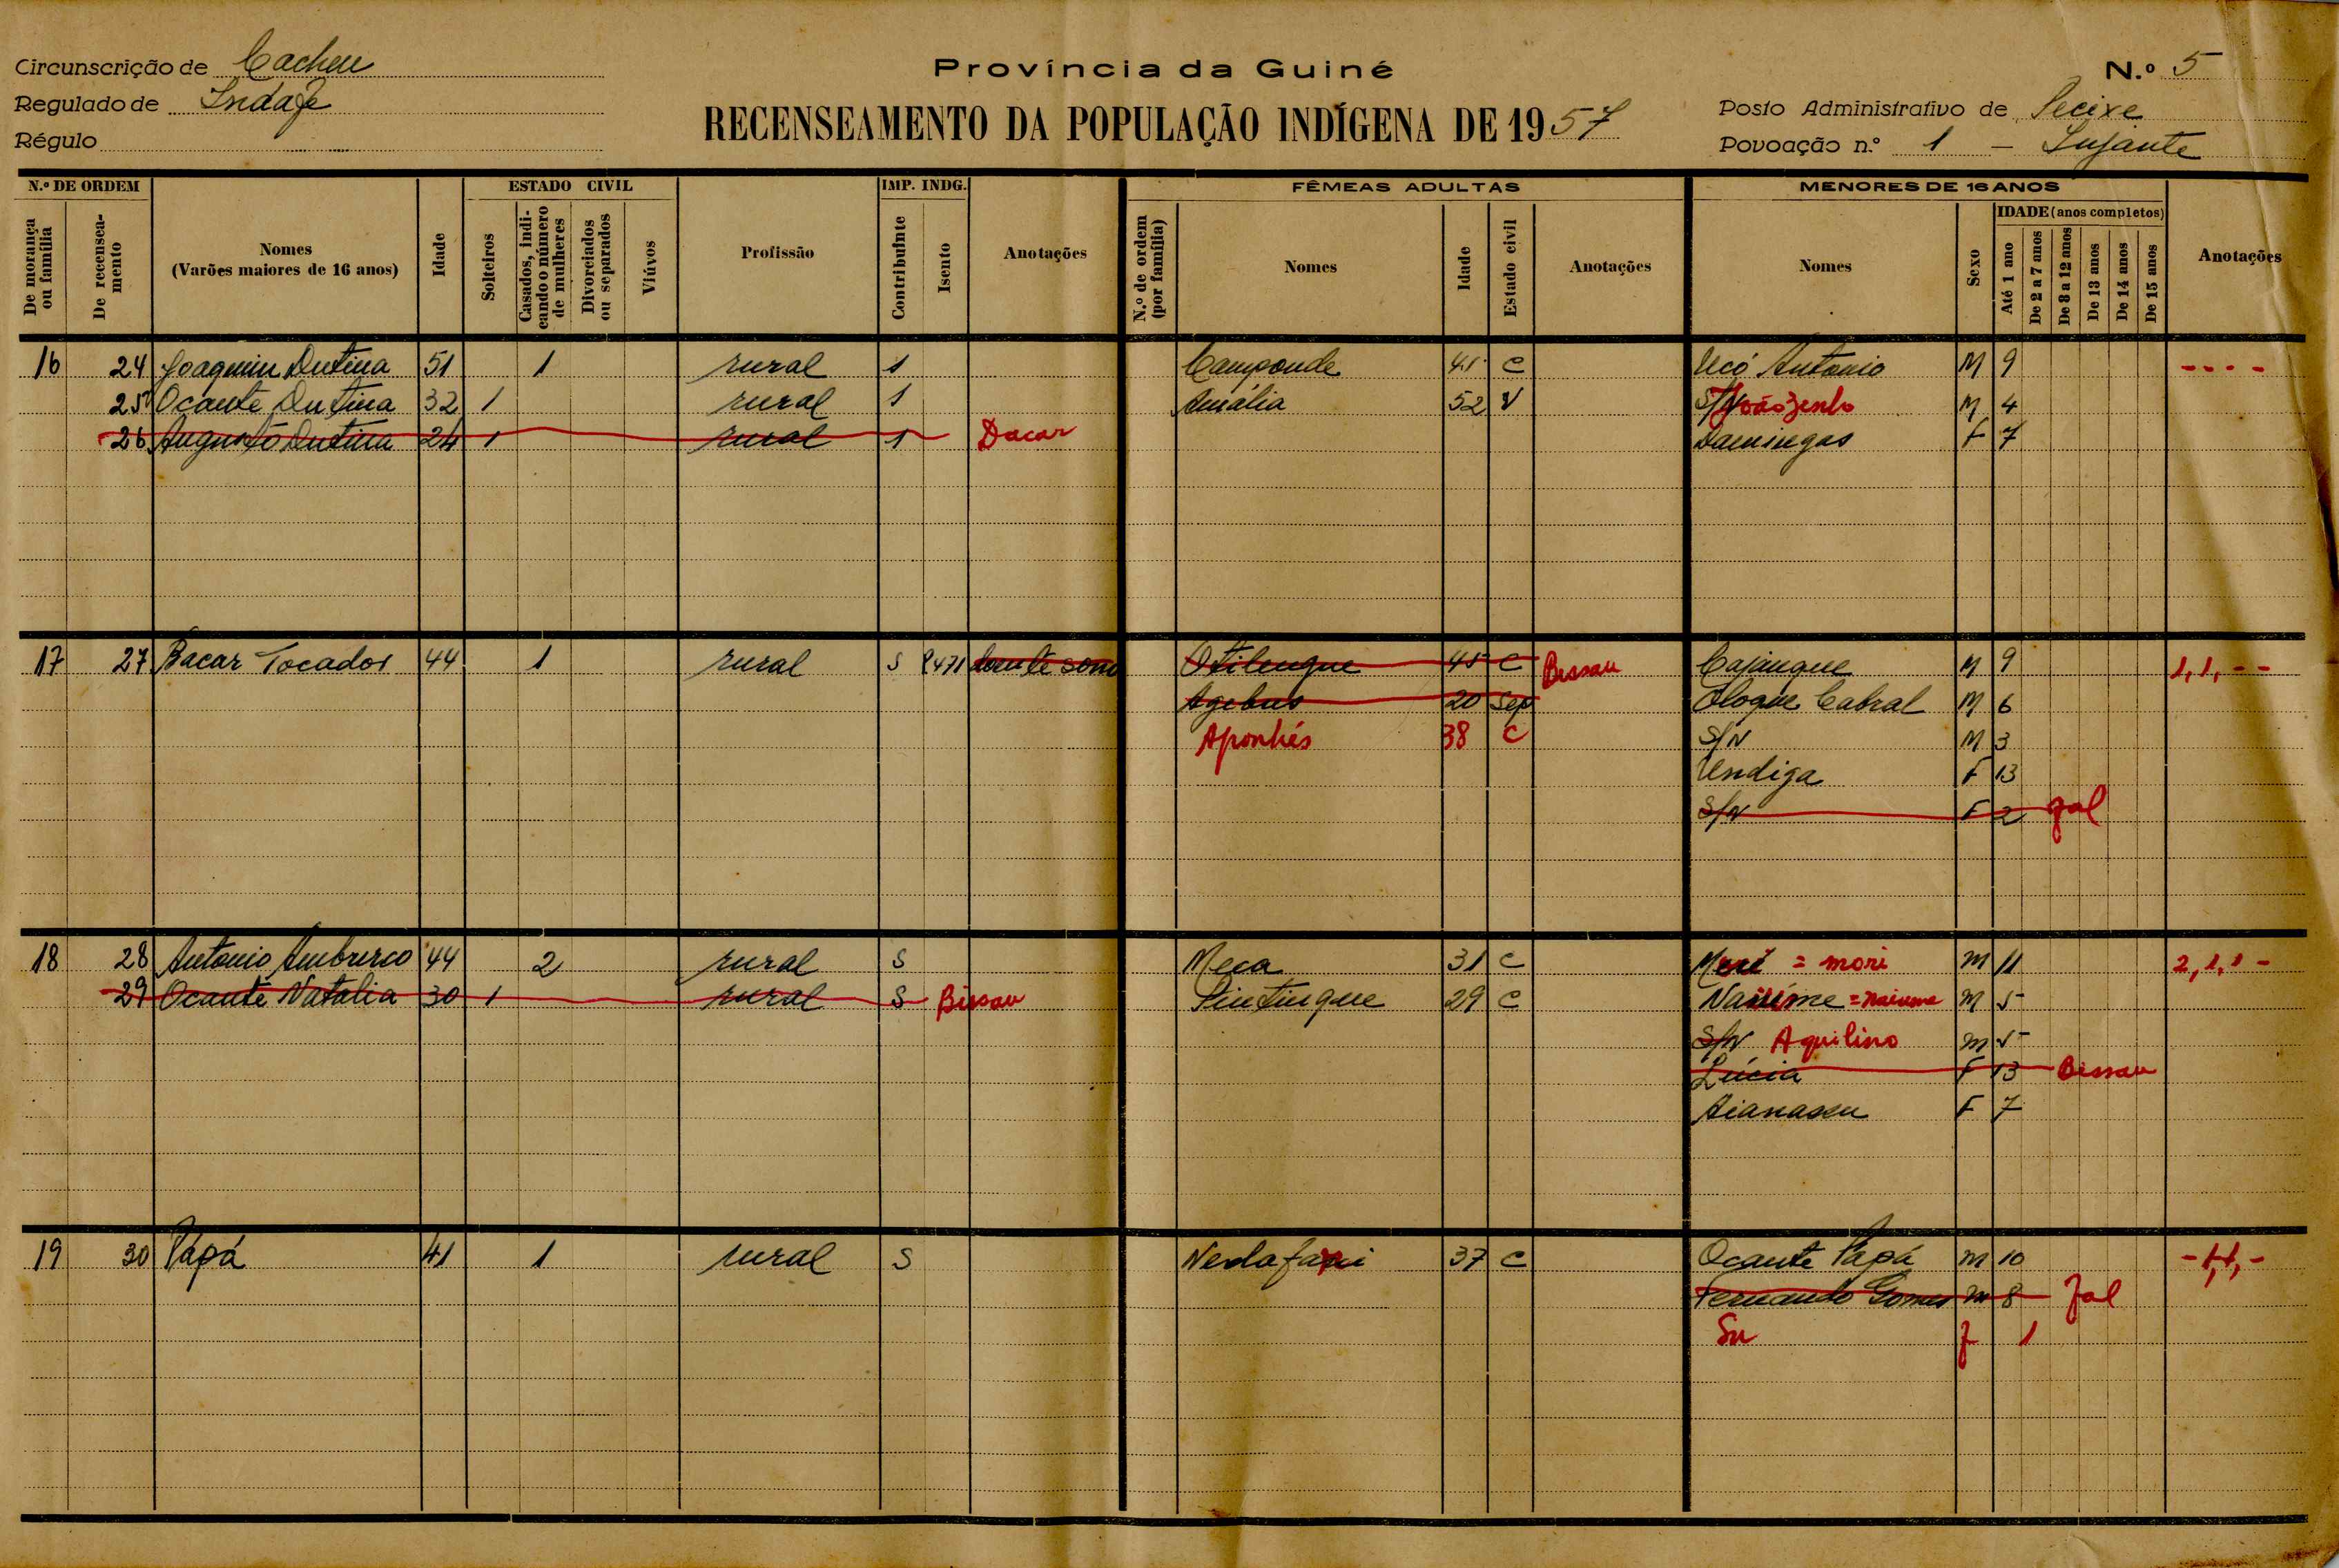 Circunscrição de Cacheu
Regulado de
Régulo
Província da Guiné
RECENSEAMENTO DA POPULAÇÃO INDÍGENA DE 1957
N.º 5
Posto Administrativo de Pecixe
Povoação n.º 1 -
N.º DE ORDEM
De morança ou família
De recenseamento
Nomes
(Varões maiores de 16 anos)
Idade
ESTADO CIVIL
Solteiros
Casados, indicando o número de mulheres
Divorciados ou separados
Viúvos
Profissão
IMP. INDG.
Contribuinte
Isento
Anotações
FÊMEAS ADULTAS
N.º de ordem (por família)
Nomes
Idade
Estado civil
Anotações
MENORES DE 16 ANOS
Nomes
Sexo
IDADE (anos completos)
Até 1 ano
De 2 a 7 anos
De 8 a 12 anos
De 13 anos
De 14 anos
De 15 anos
Anotações
16 24 Joaquim Dutina 51 1 rural 1 Camponde 41 C Ucó Antonio M 9 - - - -
25 Ocante Dutina 32 1 rural 1 Amália 52 V S/N João M 4
26 Augusto Dutina 24 1 rural 1 Dacar Domingas F 7
17 27 Bacar Tocador 44 1 rural S Otilengue 45 C Bissau Cajingue M 9 1, 1, - -
20 Sep Ologue Cabral M 6
Aponhés 38 C S/N M 3
Undiga F 13
S/N F 2 fal
18 28 Antonio 44 2 rural S Meca 31 C = mori M 11 2, 1, 1 -
29 Ocante Natalia 30 1 rural S Bissau 29 C = naiume M 5
S/N Aquilino M 5
Lúcia F 13 Bissau
F 7
19 30 Papá 41 1 rural S 37 C Ocante Papá M 10
Fernando Gomes M 8 fal
Sn f 1